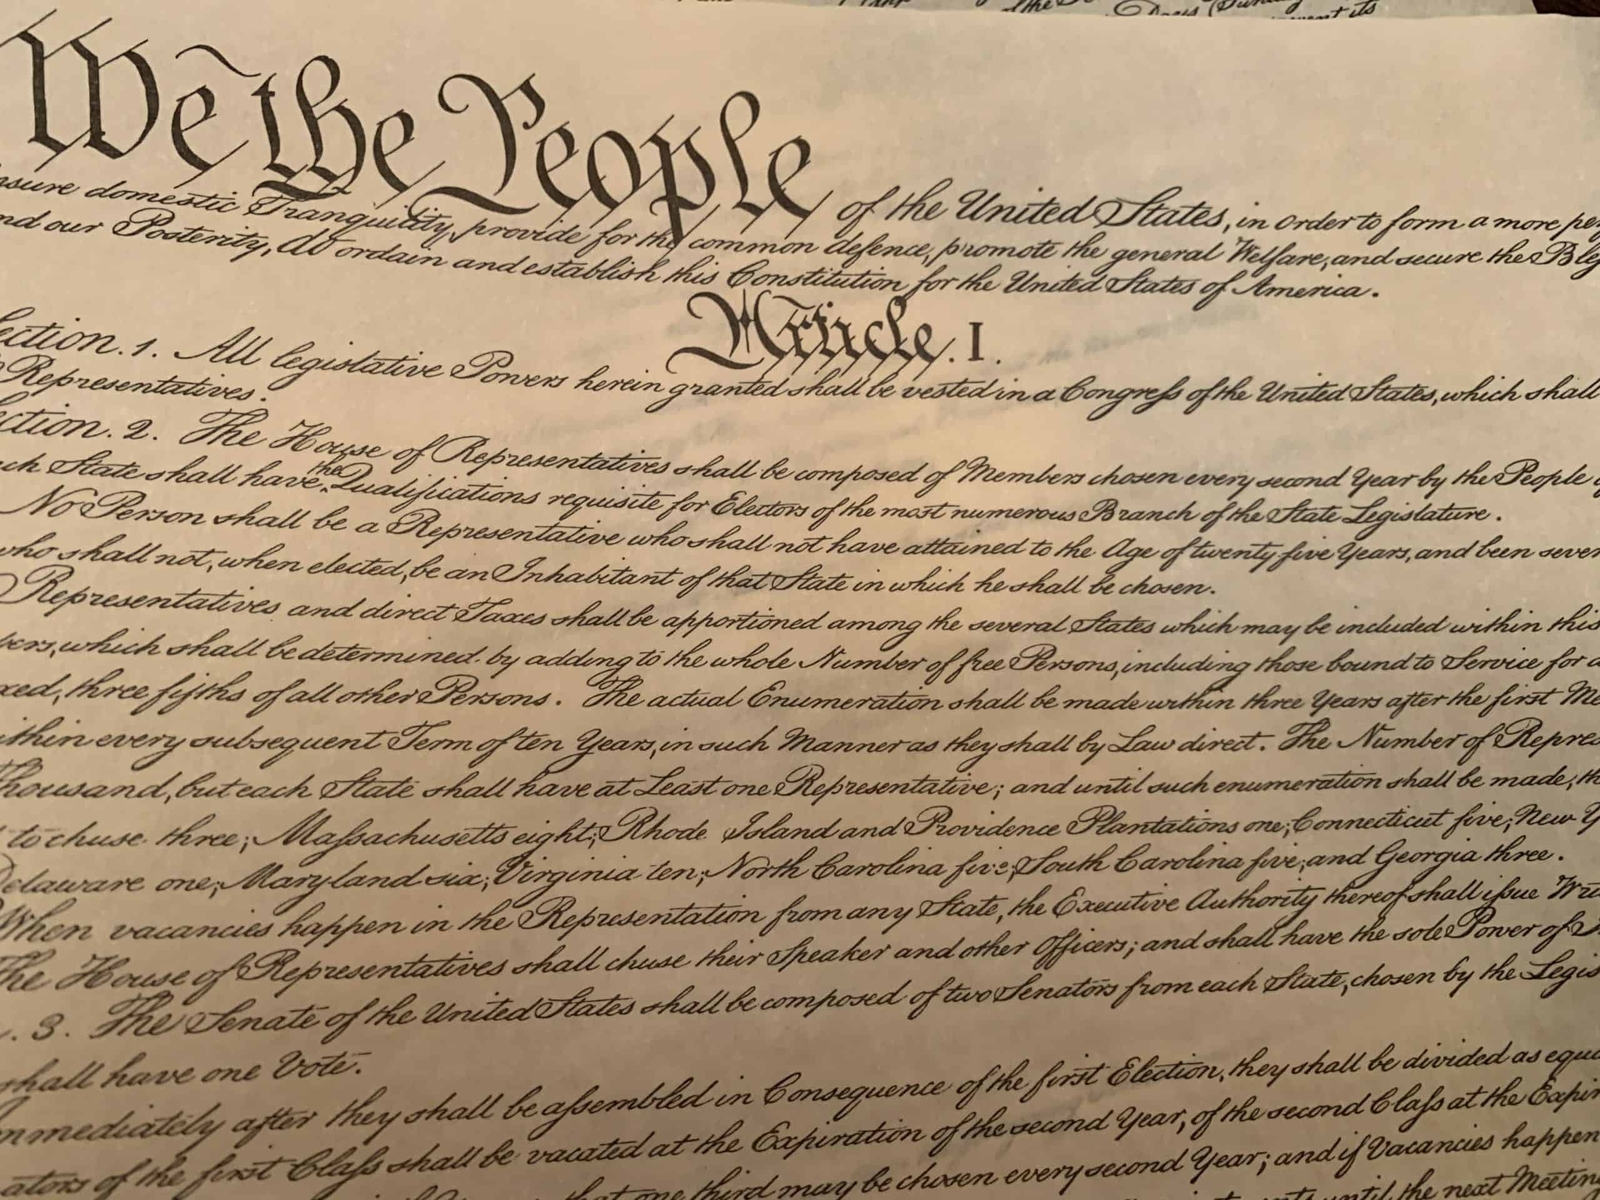 We the People of the United States, in order to form a more
domestic Tranquility, provide for the common defence, promote the general Welfare, and secure the
our Posterity, do ordain and establish this Constitution for the United States of America.
Article. I.
ection. 1. All legislative Powers herein granted shall be vested in a Congress of the United States, which shall
Representatives.
ction. 2. The House of Representatives shall be composed of Members chosen every second Year by the People
ch State shall have the Qualifications requisite for Electors of the most numerous Branch of the State Legislature.
No Person shall be a Representative who shall not have attained to the Age of twenty five Years, and been seven
who shall not, when elected, be an Inhabitant of that State in which he shall be chosen.
Representatives and direct Taxes shall be apportioned among the several States which may be included within this
bers, which shall be determined by adding to the whole Number of free Persons, including those bound to Service for a
xed, three fifths of all other Persons. The actual Enumeration shall be made within three Years after the first Me
ithin every subsequent Term of ten Years, in such Manner as they shall by Law direct. The Number of Repres
Thousand, but each State shall have at Least one Representative; and until such enumeration shall be made, th
to chuse three, Massachusetts eight, Rhode Island and Providence Plantations one, Connecticut five, New Y
Delaware one, Maryland six, Virginia ten, North Carolina five, South Carolina five, and Georgia three.
When vacancies happen in the Representation from any State, the Executive Authority thereof shall issue Wri
The House of Representatives shall chuse their Speaker and other Officers; and shall have the sole Power of
. 3. The Senate of the United States shall be composed of two Senators from each State, chosen by the Legis
shall have one Vote.
Immediately after they shall be assembled in Consequence of the first Election, they shall be divided as equa
ators of the first Class shall be vacated at the Expiration of the second Year, of the second Class at the Expir
that one third may be chosen every second Year; and if Vacancies happen
until the next Meeting